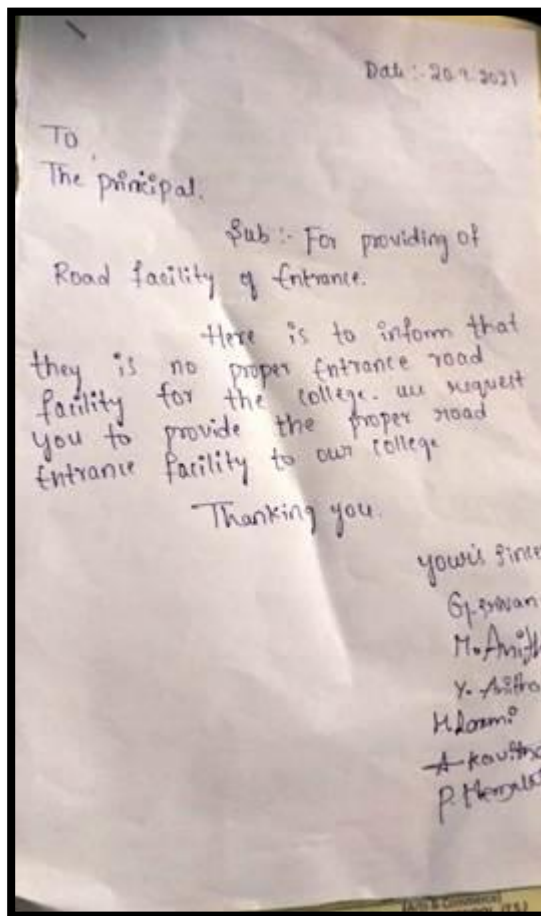 Date :- 20.9.2021
To,
The principal.
Sub :- For providing of
Road facility of Entrance.
Here is to inform that
they is no proper Entrance road
facility for the college. we request
you to provide the proper road
Entrance facility to our college
Thanking you.
your's since
M. Anith
Y.
H.
A kavitha
P.
(Arts & Commerce)